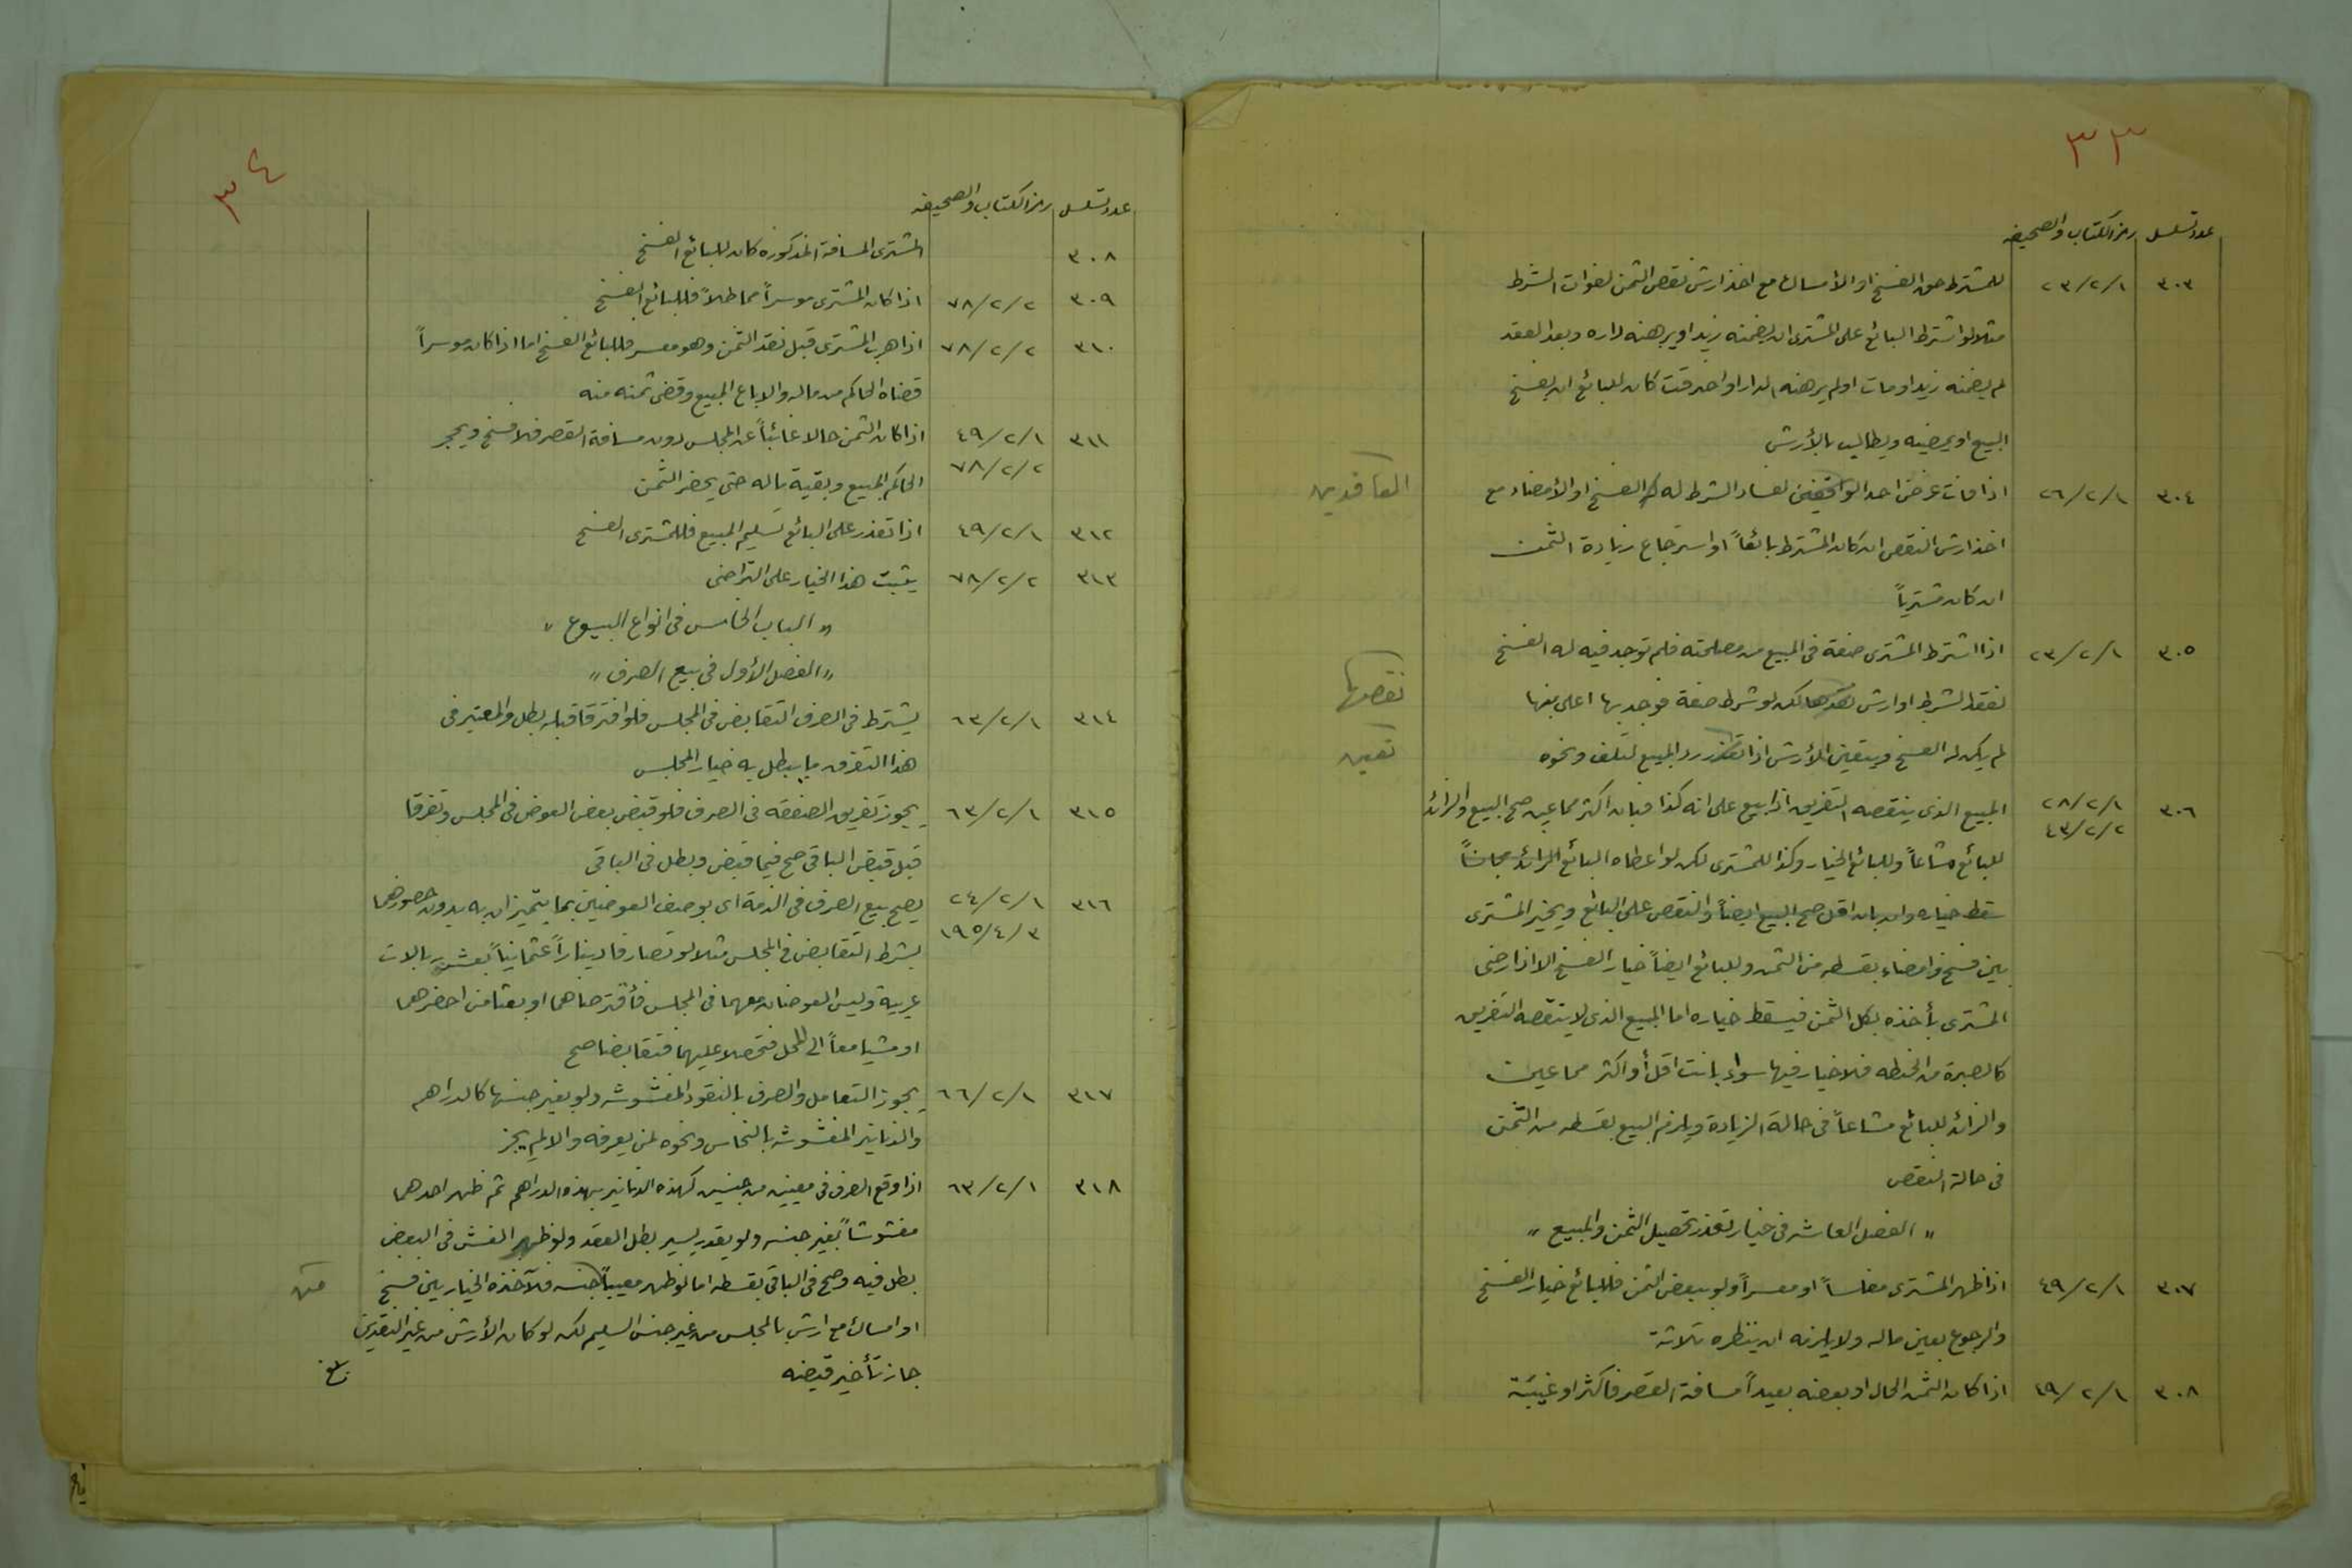 ٣٣
عدد تسلسل رمز الكتاب والصحيفه
٣٠٣ ٢٣/٢/١ للمشترط حق الفسخ او الأمساك مع اخذ ارش نقص الثمن لفوات الشرط
مثلا لو اشترط البائع على المشترى ان يضمنه زيد او يرهنه داره وبعد العقد
لم يضمنه زيد او مات او لم يرهنه الدار او احترقت كان للبائع ان يفسخ
البيع او يمضيه ويطالب بالأرش
٣٠٤ ٢٦/٢/١ اذا فات غرض احد الواقفين لفساد الشرط له الفسخ او الأمضاء مع
العاقدين
اخذ ارش النقص ان كان المشترط بائعاً او استرجاع زيادة الثمن
ان كان مشترياً
٣٠٥ ٢٣/٢/١ اذا اشترط المشترى صفة فى المبيع من مصلحته فلم توجد فيه له الفسخ
لفقد الشرط او ارش فقدها لكن لو شرط صفة فوجد بها اعلى منها
نقصها
لم يكن له الفسخ ويتعين الأرش اذا تعذر رد المبيع لتلف ونحوه
تعين
٣٠٦ ٢٨/٢/١ ٤٣/٢/٢ المبيع الذى ينقصه التفريق اذا بيع على انه كذا فبان اكثر مما عين صح البيع والزائد
للبائع مشاعاً وللبائع الخيار وكذا للمشترى لكن لو اعطاه البائع الزائد مجاناً
سقط خياره وان بان اقل صح البيع ايضاً والنقص على البائع ويخير المشترى
بين فسخ وامضاء بقسطه من الثمن وللبائع ايضاً خيار الفسخ الا اذا رضى
المشترى بأخذه بكل الثمن فيسقط خياره اما المبيع الذى لا ينقصه التفريق
كالصبرة من الحنطه فلا خيار فيها سواء بانت اقل أو اكثر مما عين
والزائد للبائع مشاعاً فى حالة الزيادة ويلزم البيع بقسطه من الثمن
فى حالة النقص
" الفصل العاشر فى خيار تعذر تحصيل الثمن والمبيع "
٣٠٧ ٤٩/٢/١ اذا ظهر المشترى مفلساً او معسراً ولو ببعض الثمن فللبائع خيار الفسخ
والرجوع بعين ماله ولا يلزمه ان ينظره ثلاثة
٣٠٨ ٤٩/٢/١ اذا كان الثمن الحال او بعضه بعيداً مسافة القصر فأكثر او غيبة
٣٤
عدد تسلسل رمز الكتاب والصحيفه
٣٠٨ المشترى المسافة المذكوره كان للبائع الفسخ
٣٠٩ ٧٨/٢/٢ اذا كان المشترى موسراً مماطلاً فللبائع الفسخ
٣١٠ ٧٨/٢/٢ اذا هرب المشترى قبل نقد الثمن وهو معسر فللبائع الفسخ اما اذا كان موسراً
قضاه الحاكم من ماله والا باع المبيع وقضى ثمنه منه
٣١١ ٤٩/٢/١ ٧٨/٢/٢ اذا كان الثمن حالا غائباً عن المجلس دون مسافة القصر فلا فسخ ويحجر
الحاكم المبيع وبقية ماله حتى يحضر الثمن
٣١٢ ٤٩/٢/١ اذا تعذر على البائع تسليم المبيع فللمشترى الفسخ
٣١٣ ٧٨/٢/٢ يثبت هذا الخيار على التراخى
" الباب الخامس فى انواع البيوع "
" الفصل الأول فى بيع الصرف "
٣١٤ ٦٣/٢/١ يشترط فى الصرف التقابض فى المجلس فلو افترقا قبله بطل والمعتبر فى
هذا التفرق ما يبطل به خيار المجلس
٣١٥ ٦٣/٢/١ يجوز تفريق الصفقه فى الصرف فلو قبض بعض العوض فى المجلس وتفرقا
قبل قبض الباقى صح فيما قبض وبطل فى الباقى
٣١٦ ٢٤/٢/١ ١٩٥/٤/٣ يصح بيع الصرف فى الذمة اى بوصف العوضين بما يتميزان به بدون حضورهما
بشرط التقابض فى المجلس مثلا لو تصارفا ديناراً عثمانياً بعشرة ريالات
عربية وليس العوضان معهما فى المجلس فأقترضاهما او بعثا من احضرهما
او مشيا معاً الى المحل فتحصلا عليهما فتقابضا صح
٣١٧ ٦٦/٢/١ يجوز التعامل والصرف بالنقود المغشوشه ولو بغير جنسها كالدراهم
والدنانير المغشوشه بالنحاس ونحوه لمن يعرفه والا لم يجز
٣١٨ ٦٣/٢/١ اذا وقع الصرف فى معينين من جنسين كهذه الدنانير بهذه الدراهم ثم ظهر احدهما
مغشوشاً بغير جنسه ولو بقدر يسير بطل العقد ولو ظهر الغش فى البعض
بطل فيه وصح فى الباقى بقسطه اما لو ظهر معيباً جنسه فلآخذه الخيار بين فسخ
من
او امساك مع ارش بالمجلس من غير جنس السليم لكن لو كان الأرش من غير النقدين
جاز تأخير قبضه